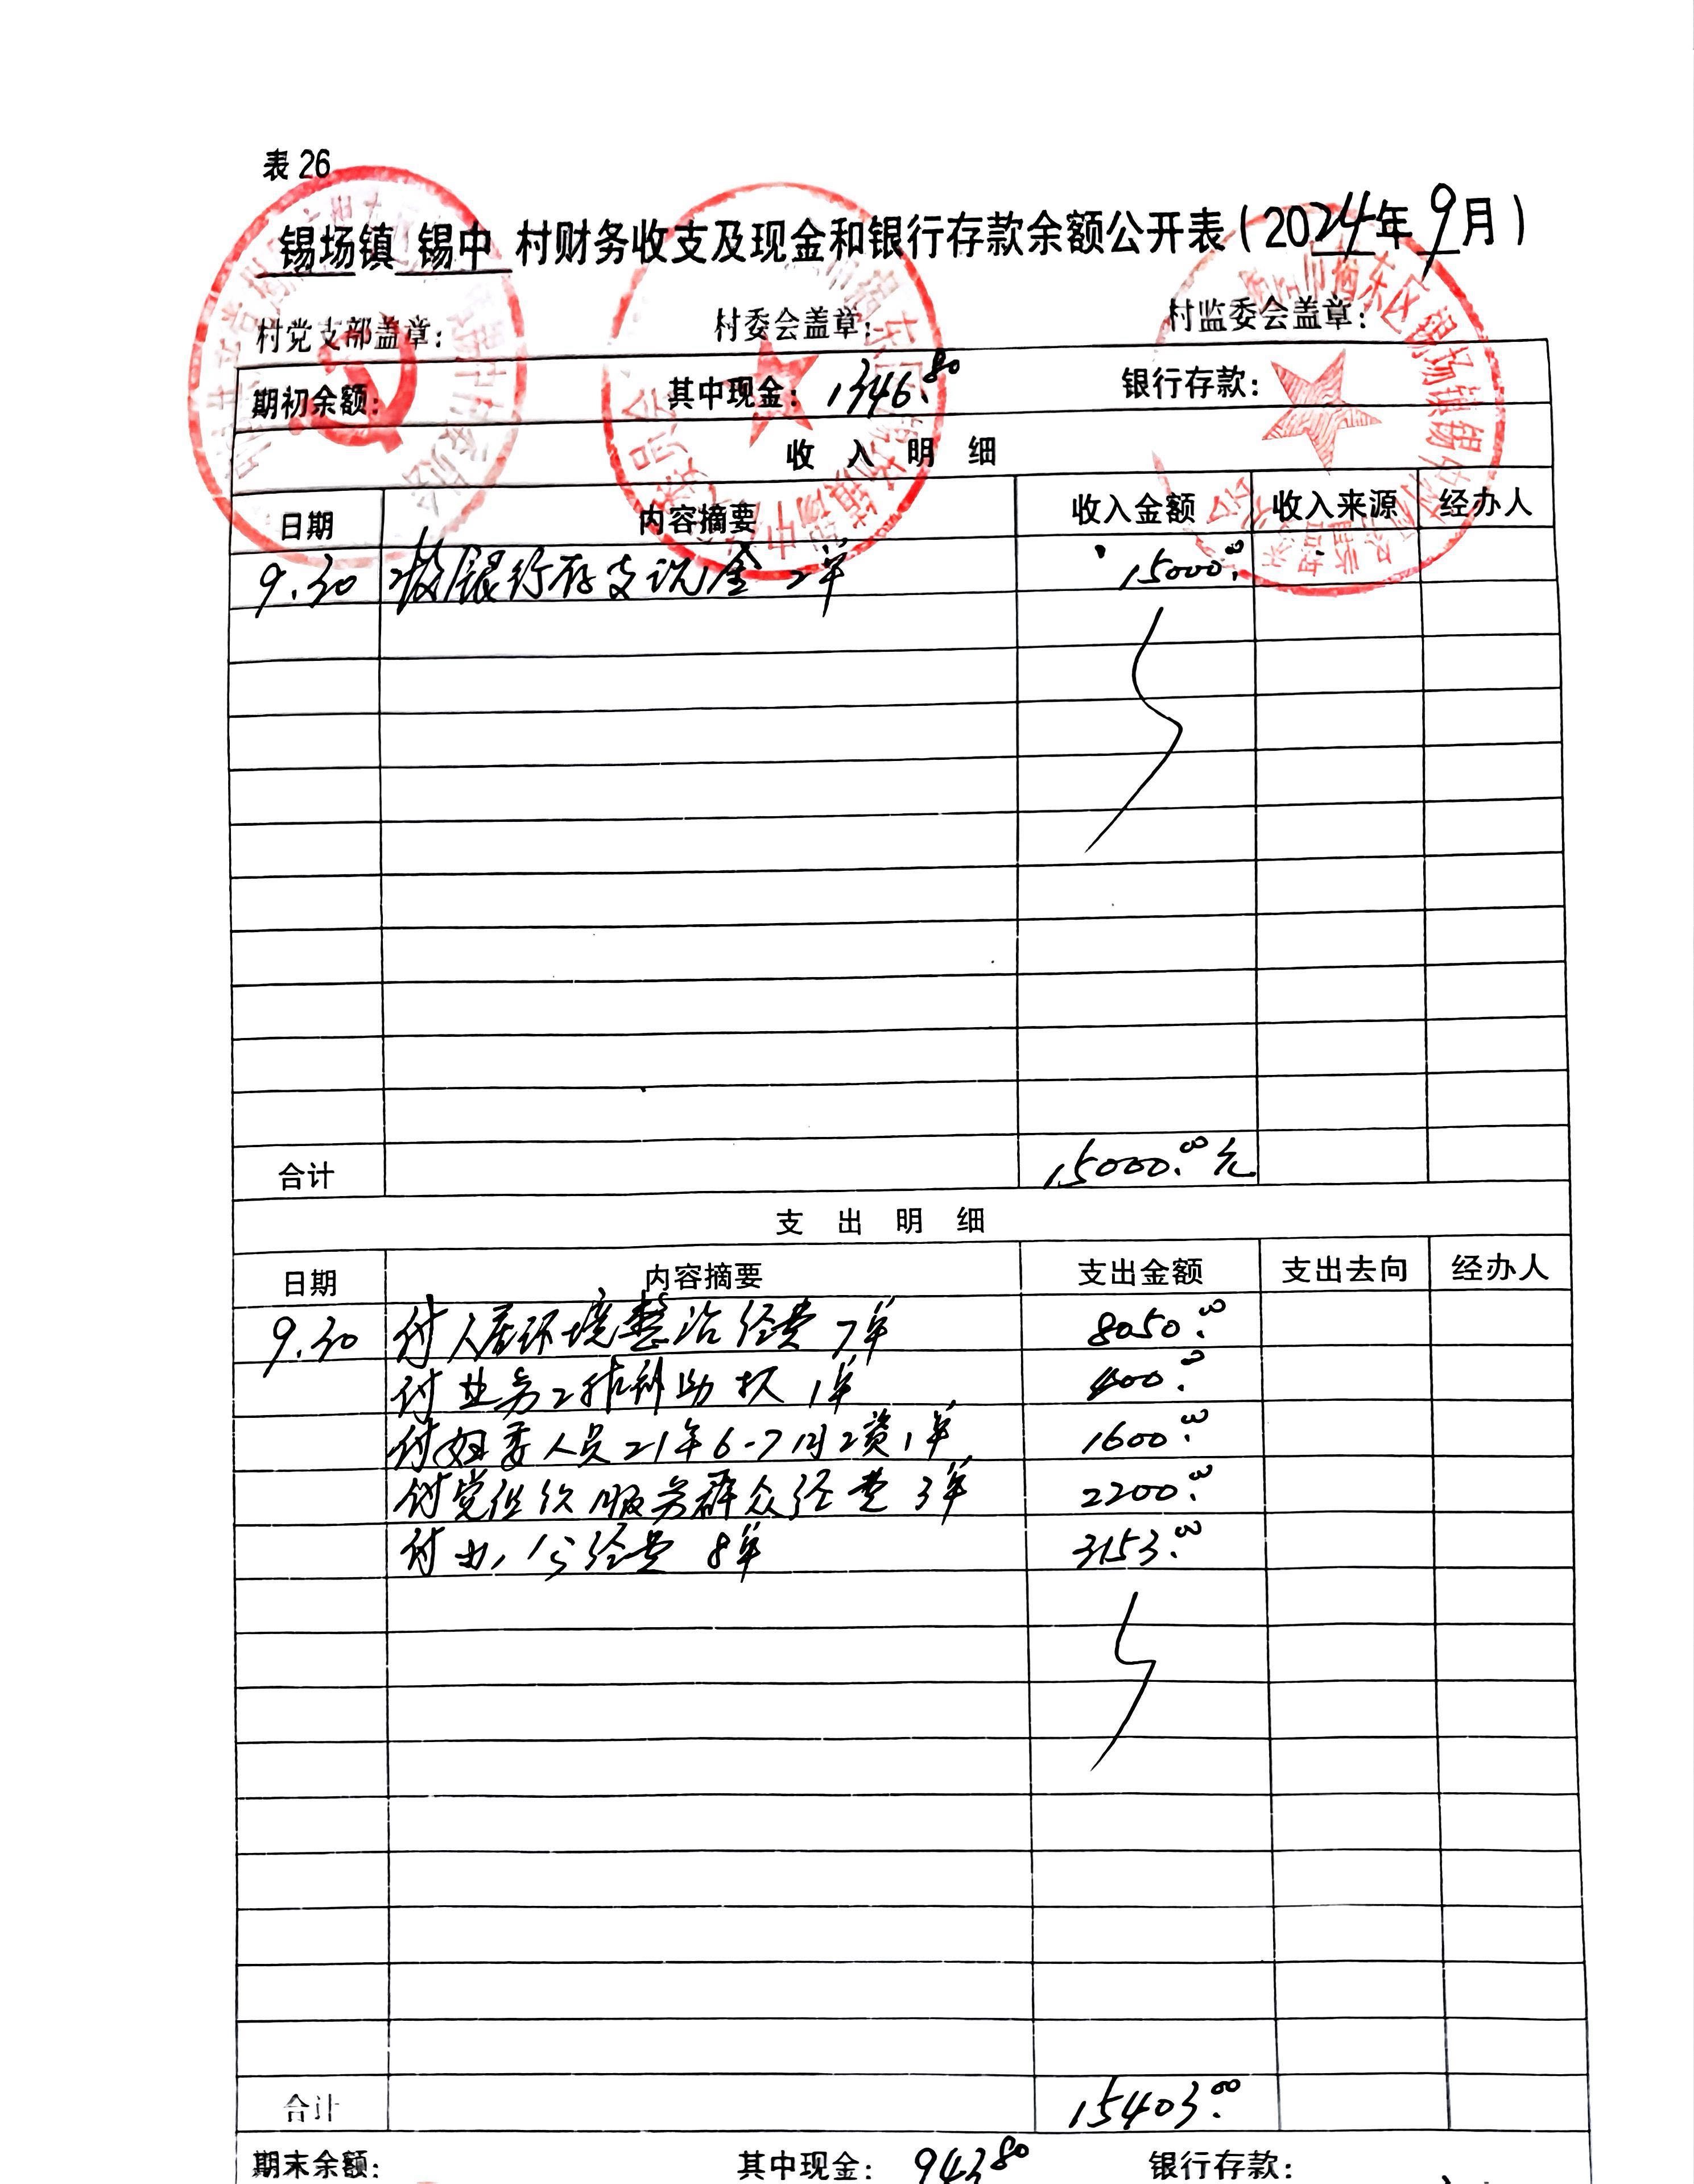 表 26
锡场镇 锡中 村财务收支及现金和银行存款余额公开表(2024年9月)
村党支部盖章: 村委会盖章: 村监委会盖章:
期初余额: 其中现金: 1346.80 银行存款:
收 入 明 细
日期 内容摘要 收入金额 收入来源 经办人
9.30 银行存支现金 2单 15000.00
合计 15000.00元
支 出 明 细
日期 内容摘要 支出金额 支出去向 经办人
9.30 付人居环境整治经费 7单 8050.00
付业务工作补助款 1单 400.0
付妇委人员21年6-7月工资1单 1600.00
付党组织服务群众经费 3单 2200.00
付办公经费 8单 3153.00
合计 15403.00
期末余额: 其中现金: 943.80 银行存款: